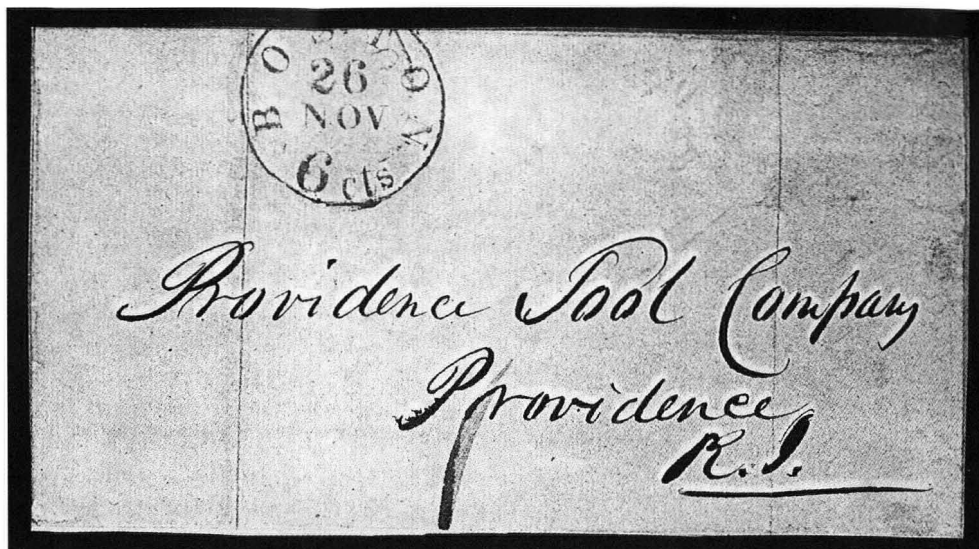 BOSTON
26
NOV
6 cts
Providence Tool Company
Providence
R. I.